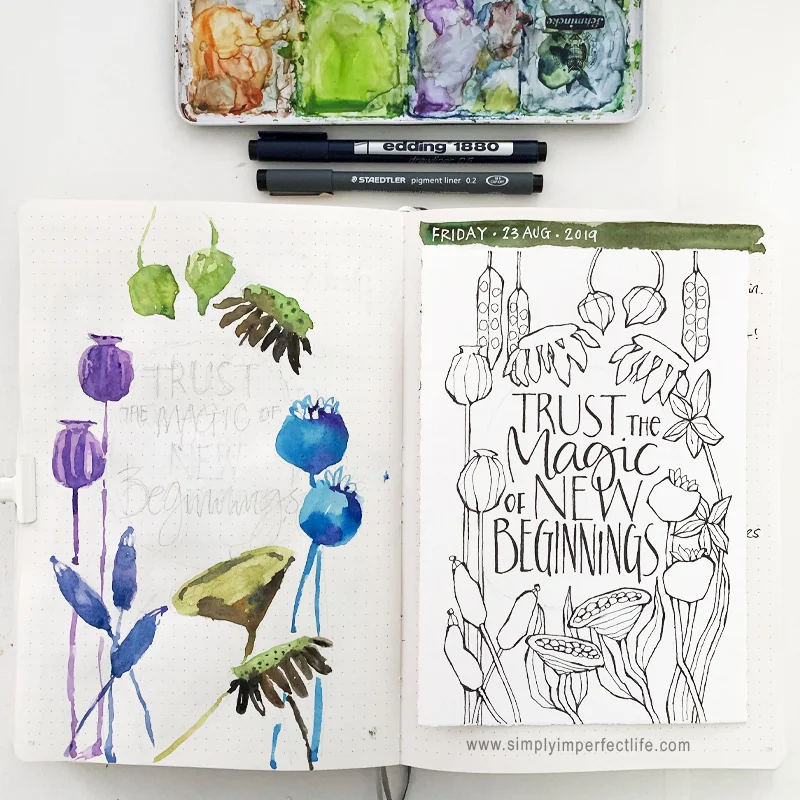 Schmincke
edding 1880
drawliner 0.5
STAEDTLER pigment liner 0.2
FRIDAY · 23 AUG · 2019
TRUST
THE MAGIC OF
NEW
Beginnings
TRUST THE
Magic
OF NEW
BEGINNINGS
www.simplyimperfectlife.com